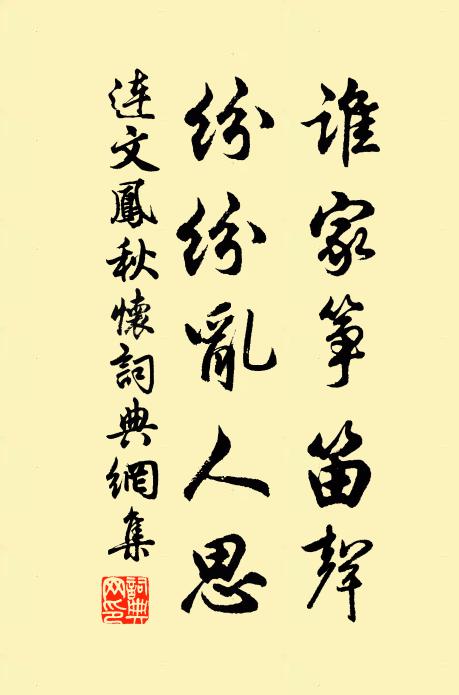 誰家箏笛聲
紛紛亂人思
連文鳳秋懷詞典網集
詞典网印